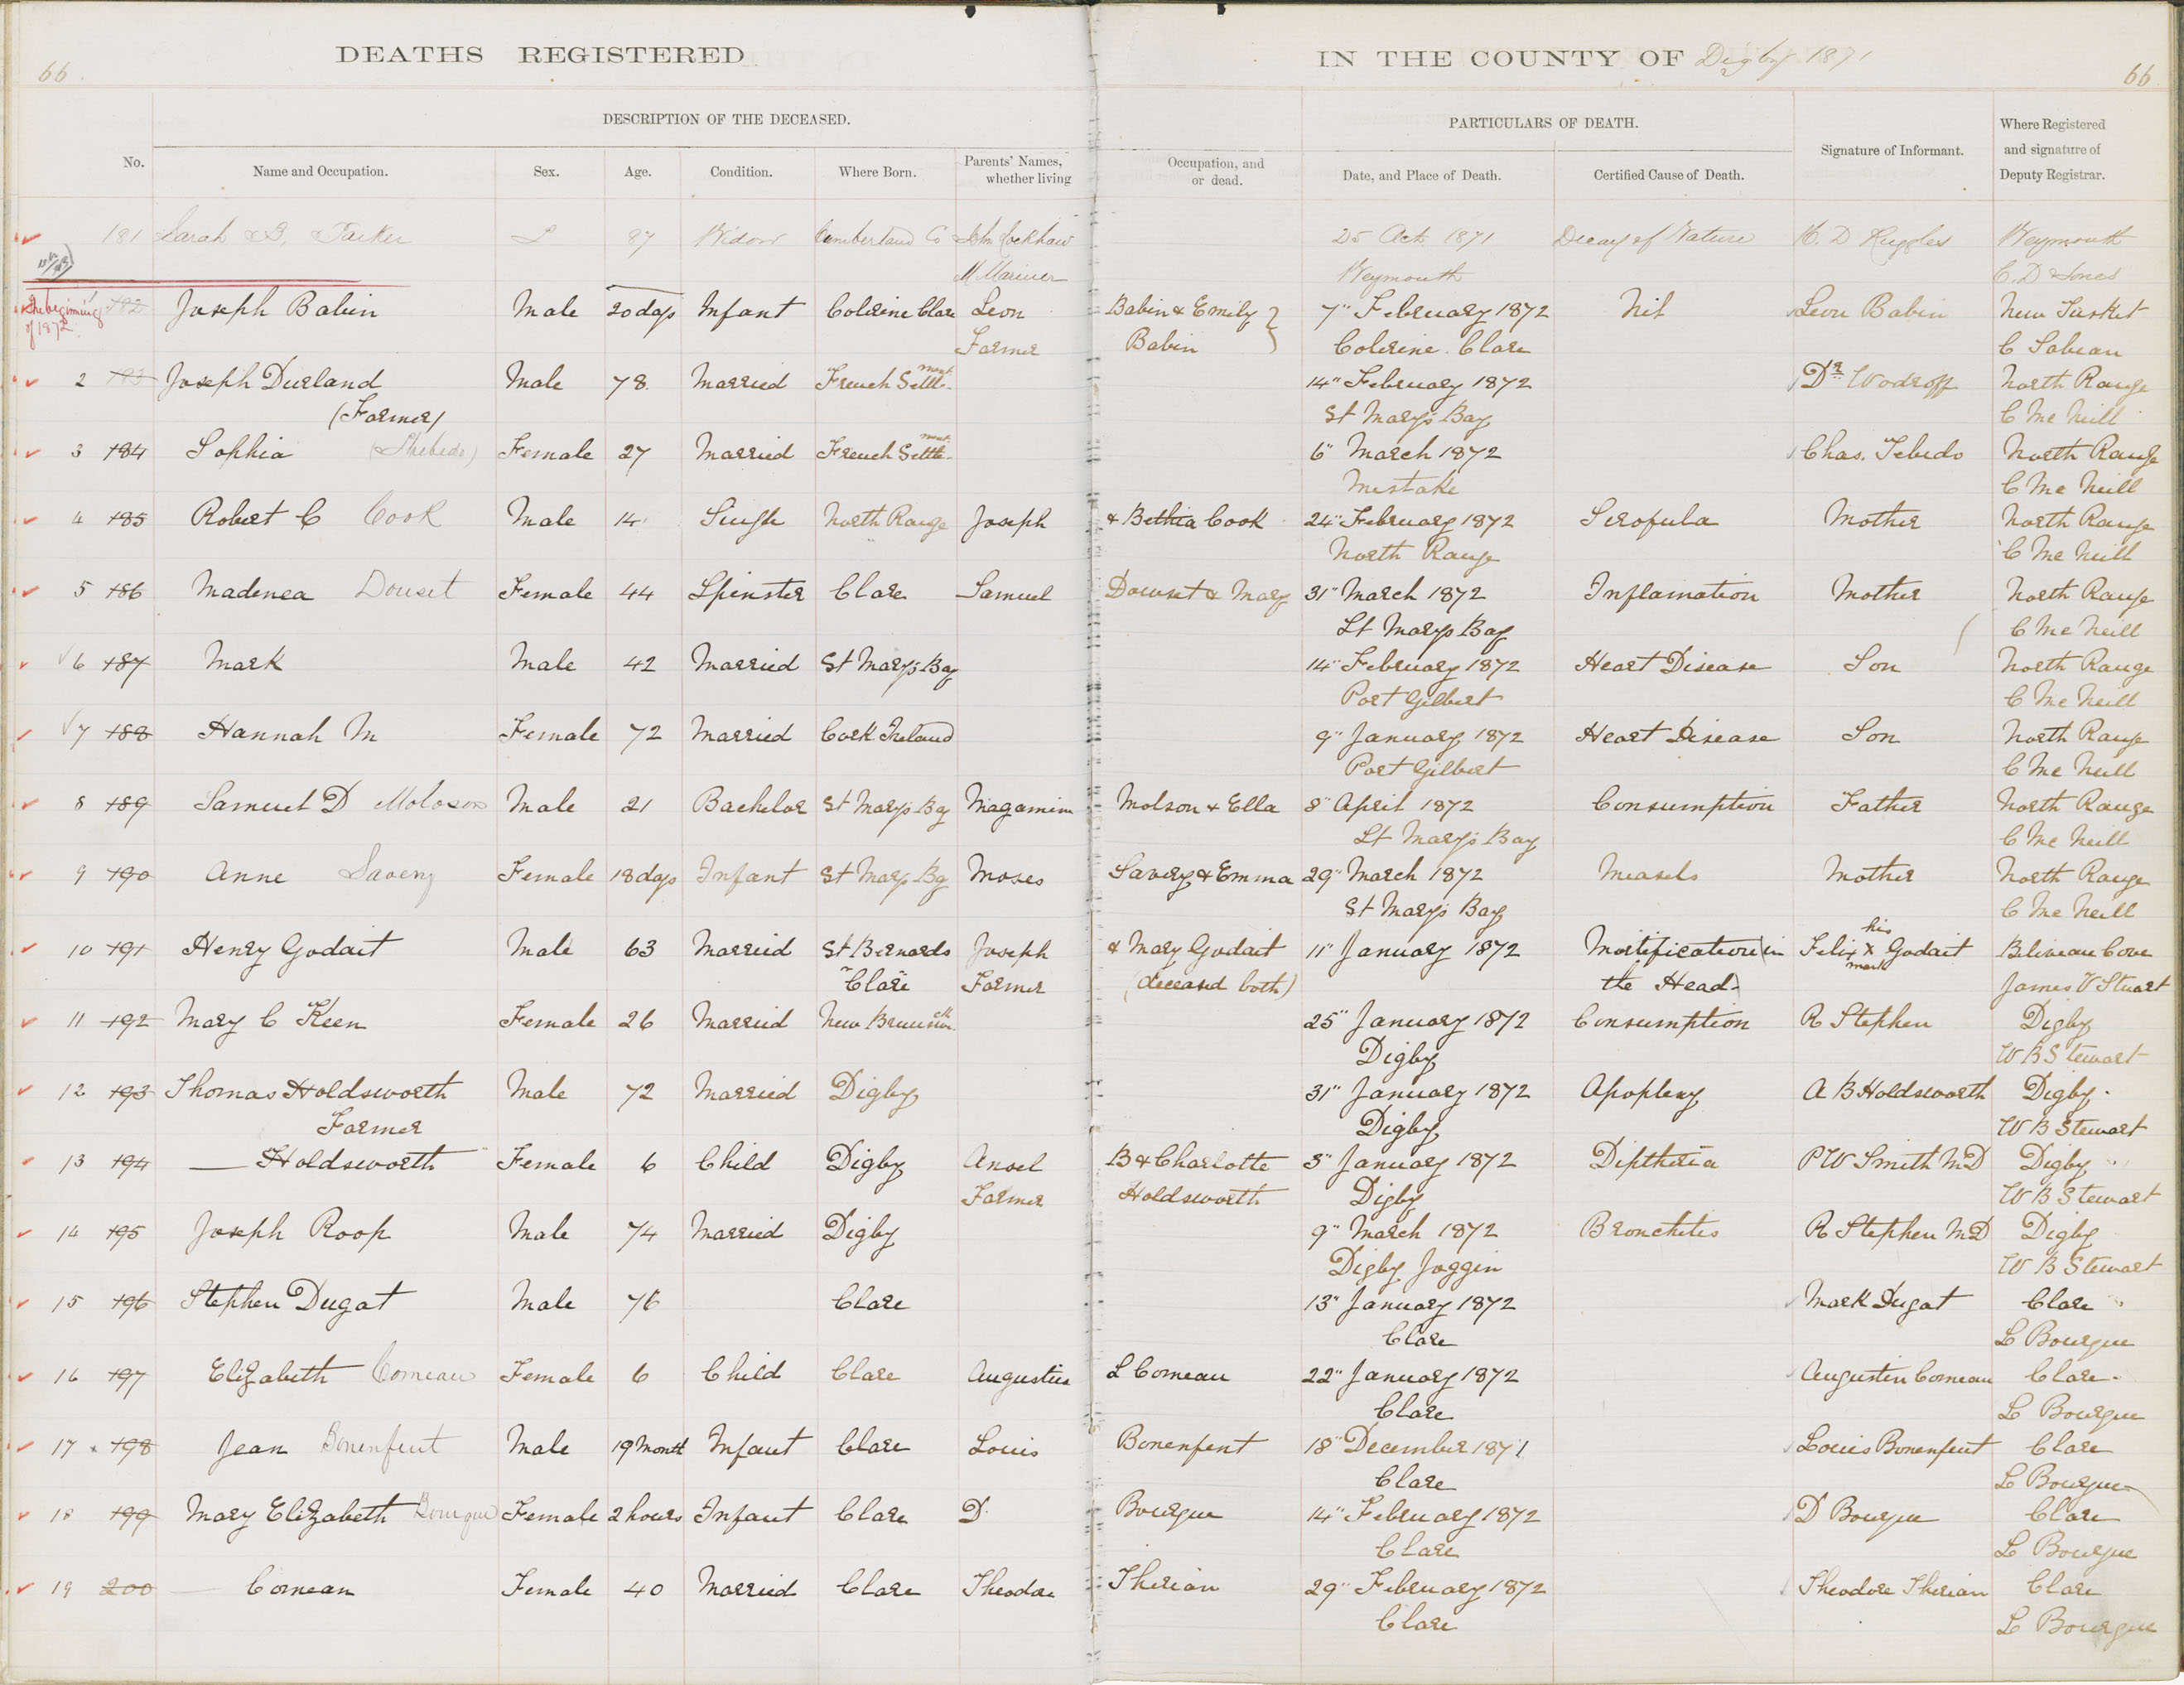 66
DEATHS REGISTERED
IN THE COUNTY OF Digby 1871
66
DESCRIPTION OF THE DECEASED.
PARTICULARS OF DEATH.
No.
Name and Occupation.
Sex.
Age.
Condition.
Where Born.
Parents' Names, whether living
Occupation, and or dead.
Date, and Place of Death.
Certified Cause of Death.
Signature of Informant.
Where Registered and signature of Deputy Registrar.
181 Sarah 87 Widow Cumberland Co John 25 Oct 1871 Decay of Nature Ruggles Weymouth
M. Mariner Weymouth C. D Jones
The beginning of 1872
182 Joseph Babin Male 20 days Infant Colerine Clare Leon Babin & Emily 7" February 1872 Nil Leon Babin New Tusket
Farmer Babin Colerine Clare C Sabean
2 183 Joseph Durland Male 78 Married French Settlement 14" February 1872 Dr Wodroff North Range
(Farmer) St Mary's Bay C Mc Neill
3 184 Sophia (Thebedo) Female 27 Married French Settlement 6" March 1872 Chas. Tebedo North Range
Mistake C Mc Neill
4 185 Robert C Cook Male 14 Single North Range Joseph & Bethia Cook 24" February 1872 Scrofula Mother North Range
North Range C Mc Neill
5 186 Madenea Douset Female 44 Spinster Clare Samuel Dowset & Mary 31" March 1872 Inflamation Mother North Range
St Marys Bay C Mc Neill
6 187 Mark Male 42 Married St Mary's Bay 14" February 1872 Heart Disease Son North Range
Port Gilbert C Mc Neill
7 188 Hannah M Female 72 Married Cork Ireland 9" January 1872 Heart Disease Son North Range
Port Gilbert C Mc Neill
8 189 Samuel D Moloson Male 21 Bachelor St Mary's Bay Magamim Molson & Ella 8" April 1872 Consumption Father North Range
St Mary's Bay C Mc Neill
9 190 Anne Savery Female 18 days Infant St Marys Bay Moses Savery & Emma 29" March 1872 Measels Mother North Range
St Mary's Bay C Mc Neill
10 191 Henry Godait Male 63 Married St Bernards Joseph & Mary Godait 11" January 1872 Mortification (in Felix his X mark Godait Bliveau Cove
Clare Farmer (deceased both) the Head) James V Stuart
11 192 Mary C Keen Female 26 Married New Brunswick 25" January 1872 Consumption R Stephen Digby
Digby W B Stewart
12 193 Thomas Holdsworth Male 72 Married Digby 31" January 1872 Apoplexy A B Holdsworth Digby
Farmer Digby W B Stewart
13 194 — Holdsworth Female 6 Child Digby Ansel B & Charlotte 3" January 1872 Diptheria P W Smith MD Digby
Farmer Holdsworth Digby W B Stewart
14 195 Joseph Roop Male 74 Married Digby 9" March 1872 Bronchitis R Stephen MD Digby
Digby Joggin W B Stewart
15 196 Stephen Dugat Male 76 Clare 13" January 1872 Mark Dugat Clare
Clare L Bourque
16 197 Elizabeth Comeau Female 6 Child Clare Augustin L Comeau 22" January 1872 Augustin Comeau Clare
Clare L Bourque
17 198 Jean Bonenfent Male 19 Month Infant Clare Louis Bonenfent 18" December 1871 Louis Bonenfent Clare
Clare L Bourque
18 199 Mary Elizabeth Bourque Female 2 hours Infant Clare D Bourque 14" February 1872 D Bourque Clare
Clare L Bourque
19 200 — Comeau Female 40 Married Clare Theodore Therian 29" February 1872 Theodore Therian Clare
Clare L Bourque